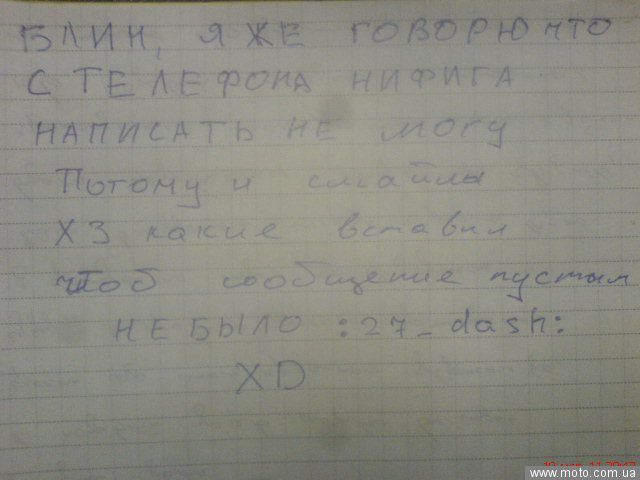 БЛИН, Я ЖЕ ГОВОРЮ ЧТО
С ТЕЛЕФОНА НИФИГА
НАПИСАТЬ НЕ МОГУ
Потому и смайлы
ХЗ какие вставил
чтоб сообщение пустым
НЕ БЫЛО :27_dash:
XD
www.moto.com.ua